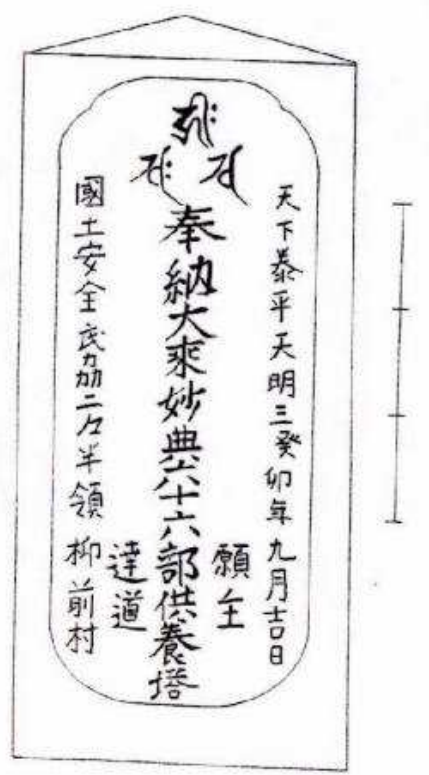 天下泰平天明三癸卯年九月吉日
願主
奉納大乗妙典六十六部供養塔
達道
國土安全武刕二々半領 柳前村